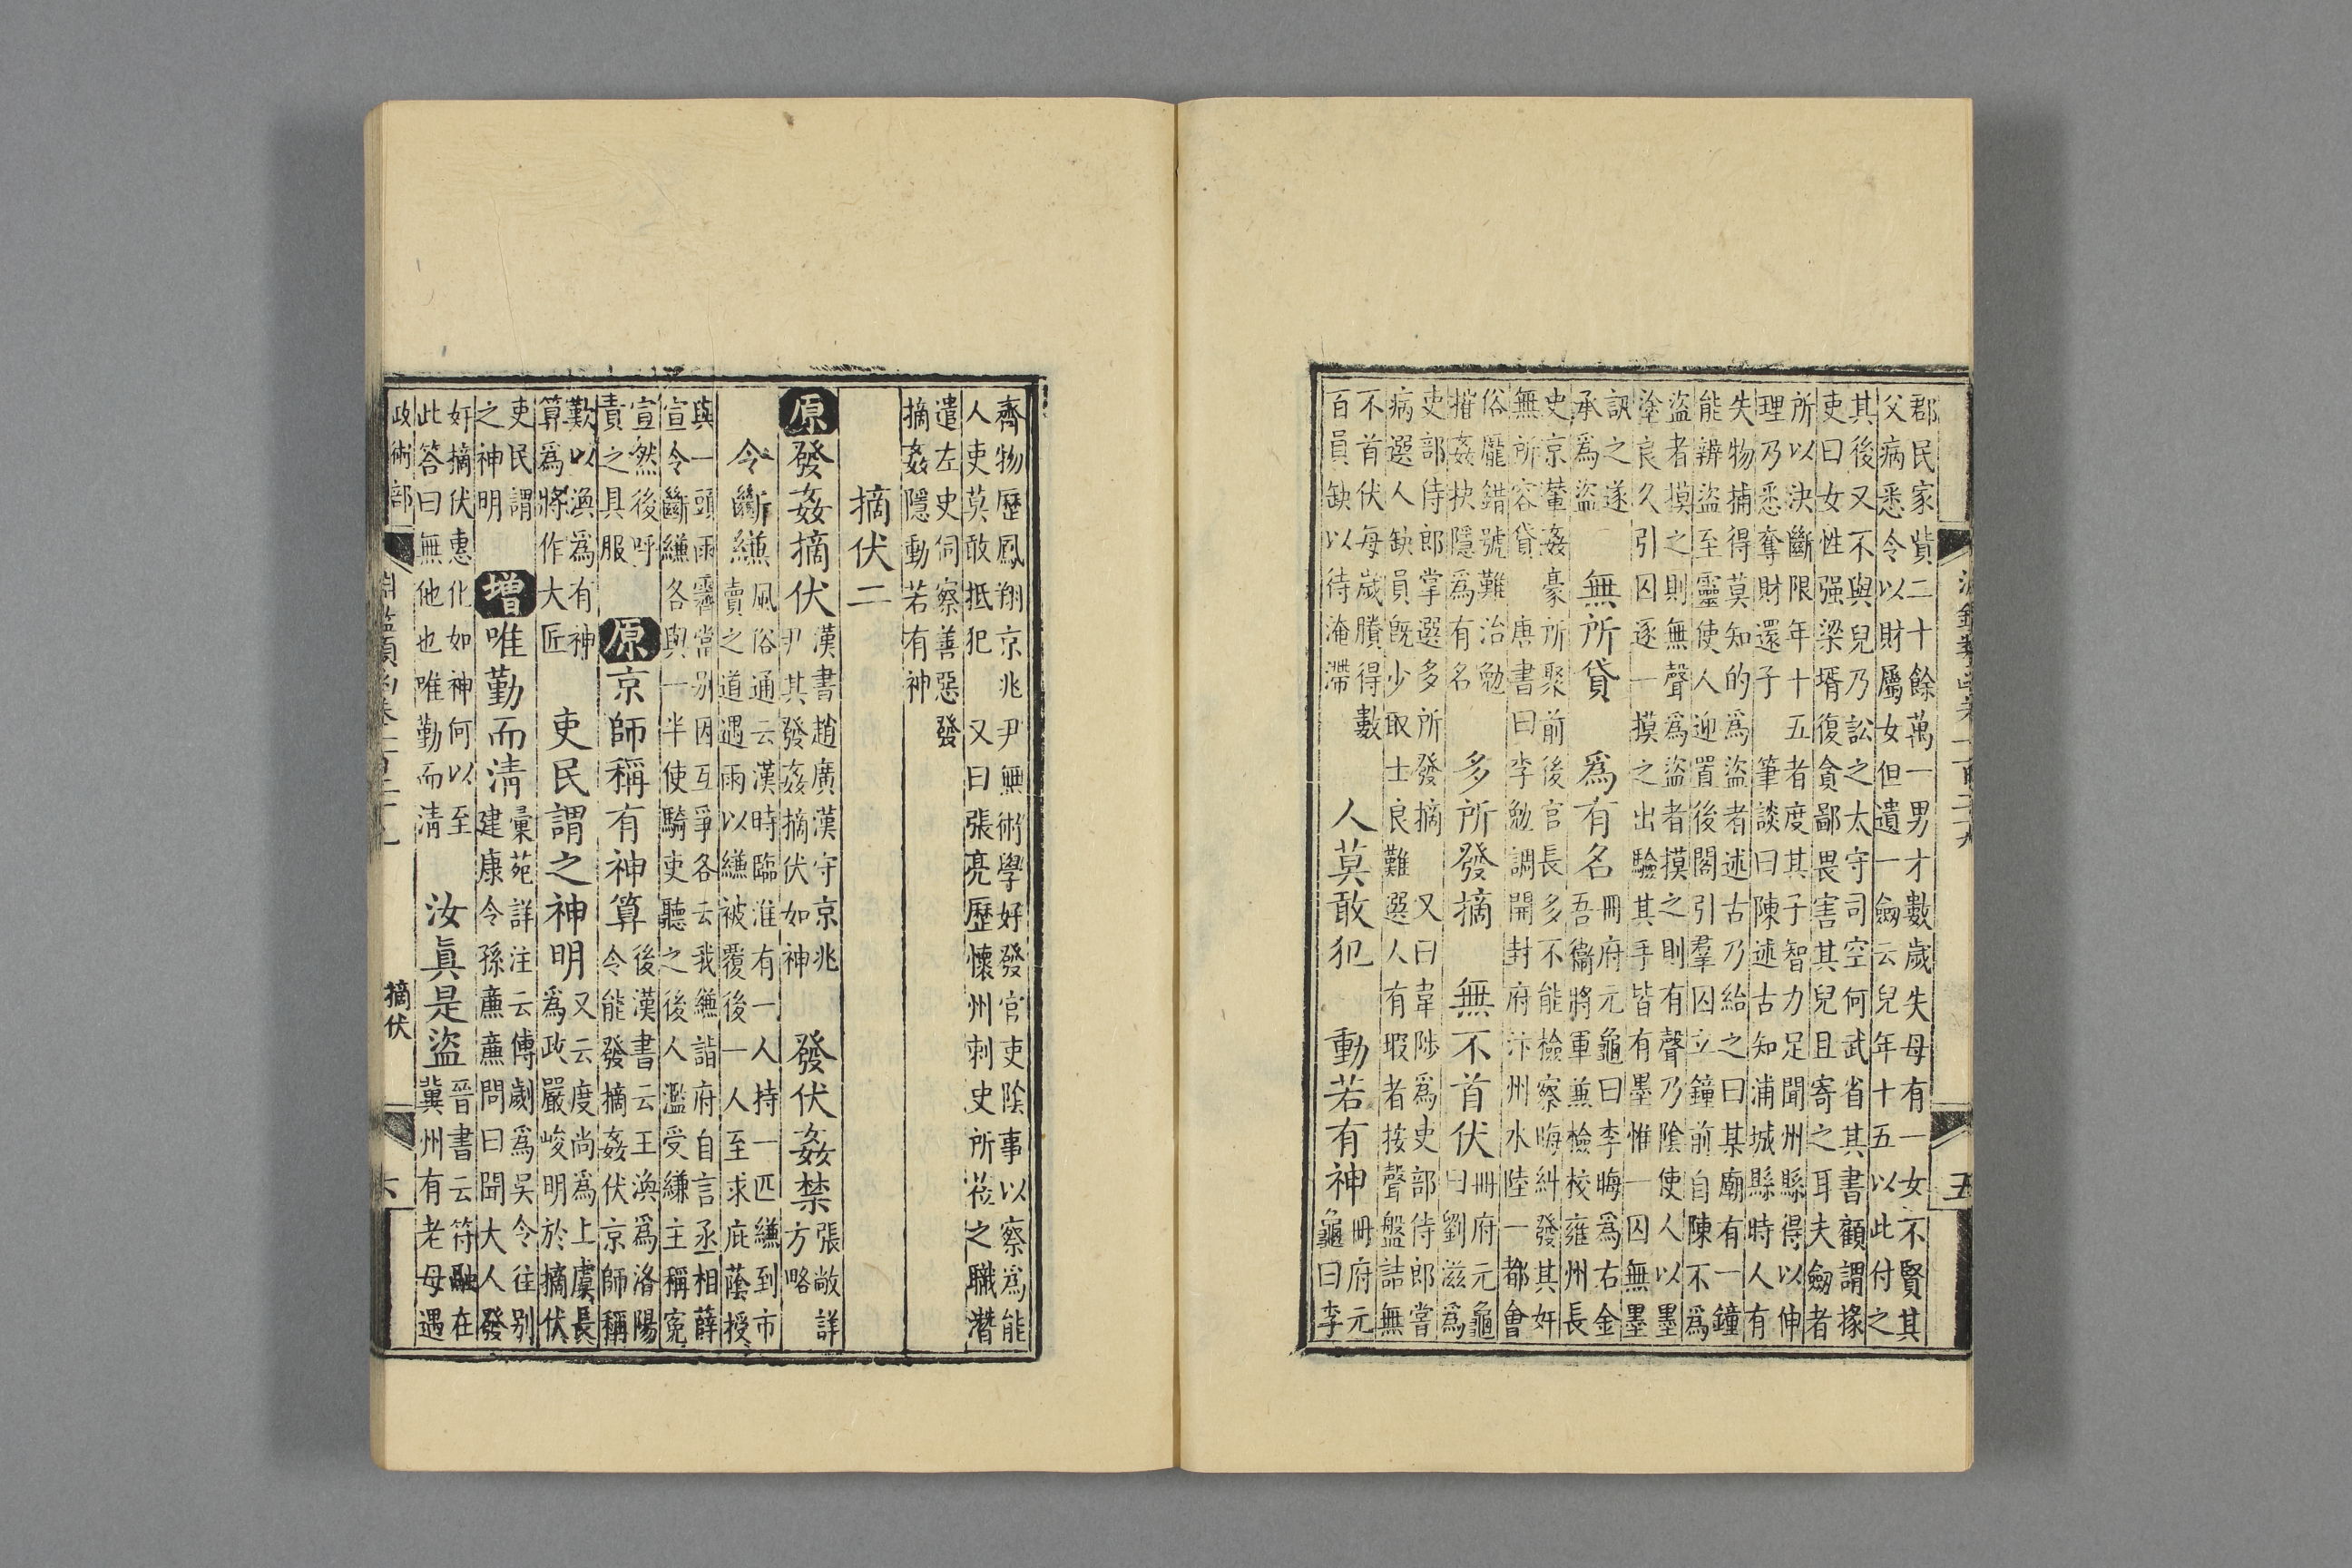 郡民家貲二十餘萬一男才數歲失母有一女不賢其
父病悉令以財屬女但遺一劔云兒年十五以此付之
其後又不與兒乃訟之太守司空何武省其書顧謂掾
吏曰女性强梁壻復貪鄙畏害其兒且寄之耳夫劔者
所以決斷限年十五者度其子智力足聞州縣得以伸
理乃悉奪財還子 筆談曰陳述古知浦城縣時人有
失物捕得莫知的爲盜者述古乃紿之曰某廟有一鐘
能辨盜至靈使人迎置後閣引羣囚立鐘前自陳不爲
盜者摸之則無聲爲盜者摸之則有聲乃陰使人以墨
塗良久引囚逐一摸之出驗其手皆有墨惟一囚無墨
訊之遂承爲盜 無所貸 爲有名 冊府元龜曰李晦爲右金吾衞將軍兼檢校雍州長
史京輦姦豪所聚前後官長多不能檢察晦糾發其奸
無所容貸 唐書曰李勉調開封府汴州水陸一都會
俗龎錯號難治勉摧姦抉隱爲有名 多所發摘 無不首伏 冊府元龜曰劉滋爲
吏部侍郎掌選多所發摘 又曰韋陟爲吏部侍郎嘗
病選人缺員旣少取士良難選人有瑕者按聲盤詰無
不首伏每歲賸得數百員缺以待淹滯 人莫敢犯 動若有神 冊府元龜曰李
齊物歷鳳翔京兆尹無術學好發官吏陰事以察爲能
人吏莫敢抵犯 又曰張亮歷懷州刺史所莅之職潛
遣左史伺察善惡發摘姦隱動若有神
摘伏二
原發姦摘伏 漢書趙廣漢守京兆尹其發姦摘伏如神 發伏姦禁 張敞詳方略
令斷縑 風俗通云漢時臨淮有一人持一匹縑到市賣之道遇雨以縑被覆後一人至求庇蔭授
與一頭雨霽當别因互爭各云我縑詣府自言丞相薛
宣令斷縑各與一半使騎吏聽之後人濫受縑主稱寃
宣然後呼責之具服 原京師稱有神算 後漢書云王渙爲洛陽令能發摘姦伏京師稱
歎以渙爲有神算爲將作大匠 吏民謂之神明 又云度尚爲上虞長爲政嚴峻明於摘伏
吏民謂之神明 增唯勤而淸 彙苑詳注云傅劌爲吳令往别建康令孫廉廉問曰聞大人發
奸摘伏惠化如神何以至此答曰無他也唯勤而淸 汝眞是盜 晉書云符融在冀州有老母遇
政術部 淵鑑類函卷一百二十九 摘伏 六